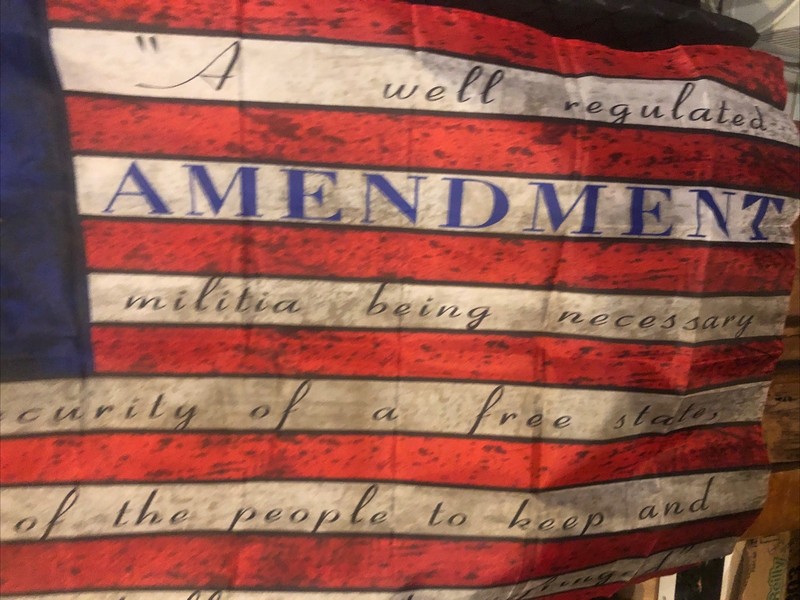 "A well regulated
AMENDMENT
militia being necessary
curity of a free state,
of the people to keep and